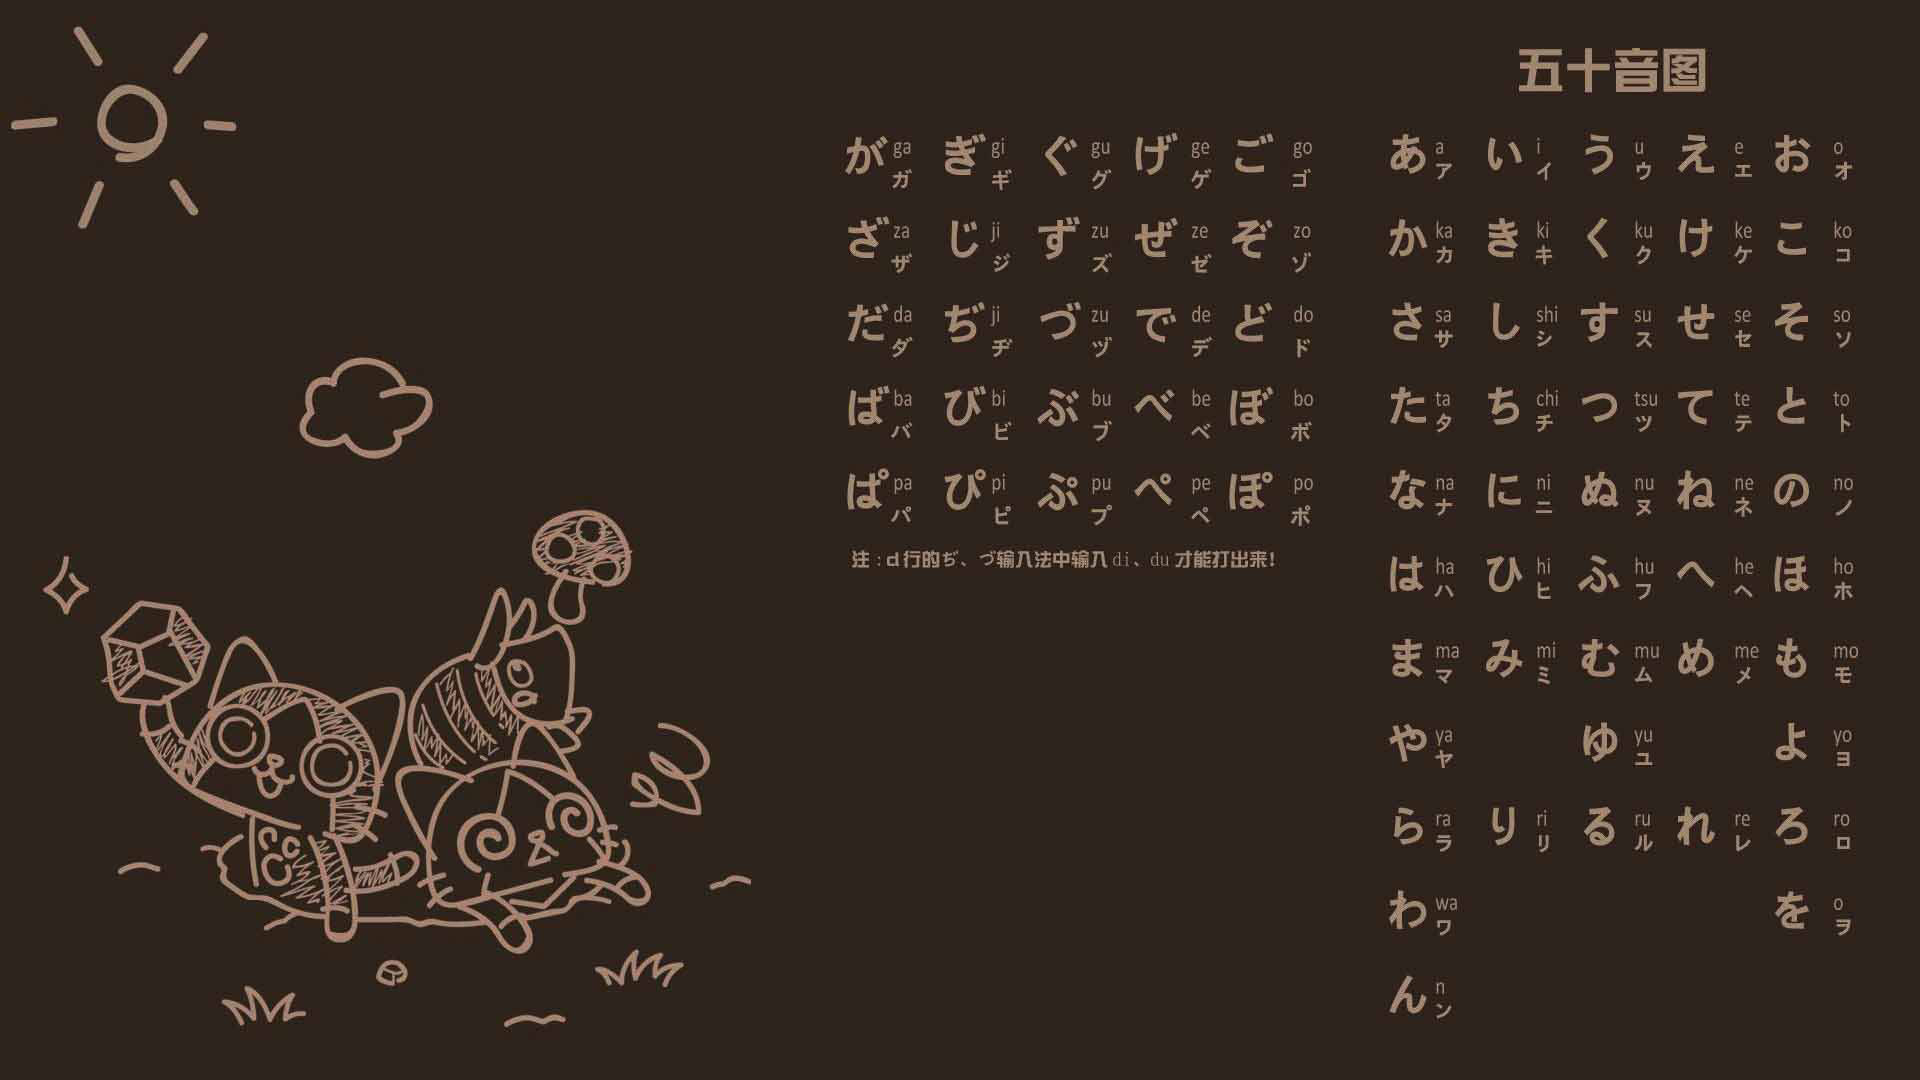 五十音图
が ga ガ ぎ gi ギ ぐ gu グ げ ge ゲ ご go ゴ
ざ za ザ じ ji ジ ず zu ズ ぜ ze ゼ ぞ zo ゾ
だ da ダ ぢ ji ヂ づ zu ヅ で de デ ど do ド
ば ba バ び bi ビ ぶ bu ブ べ be ベ ぼ bo ボ
ぱ pa パ ぴ pi ピ ぷ pu プ ぺ pe ペ ぽ po ポ
注:d行的ぢ、づ输入法中输入di、du才能打出来!
あ a ア い i イ う u ウ え e エ お o オ
か ka カ き ki キ く ku ク け ke ケ こ ko コ
さ sa サ し shi シ す su ス せ se セ そ so ソ
た ta タ ち chi チ つ tsu ツ て te テ と to ト
な na ナ に ni ニ ぬ nu ヌ ね ne ネ の no ノ
は ha ハ ひ hi ヒ ふ hu フ へ he ヘ ほ ho ホ
ま ma マ み mi ミ む mu ム め me メ も mo モ
や ya ヤ ゆ yu ユ よ yo ヨ
ら ra ラ り ri リ る ru ル れ re レ ろ ro ロ
わ wa ワ を o ヲ
ん n ン